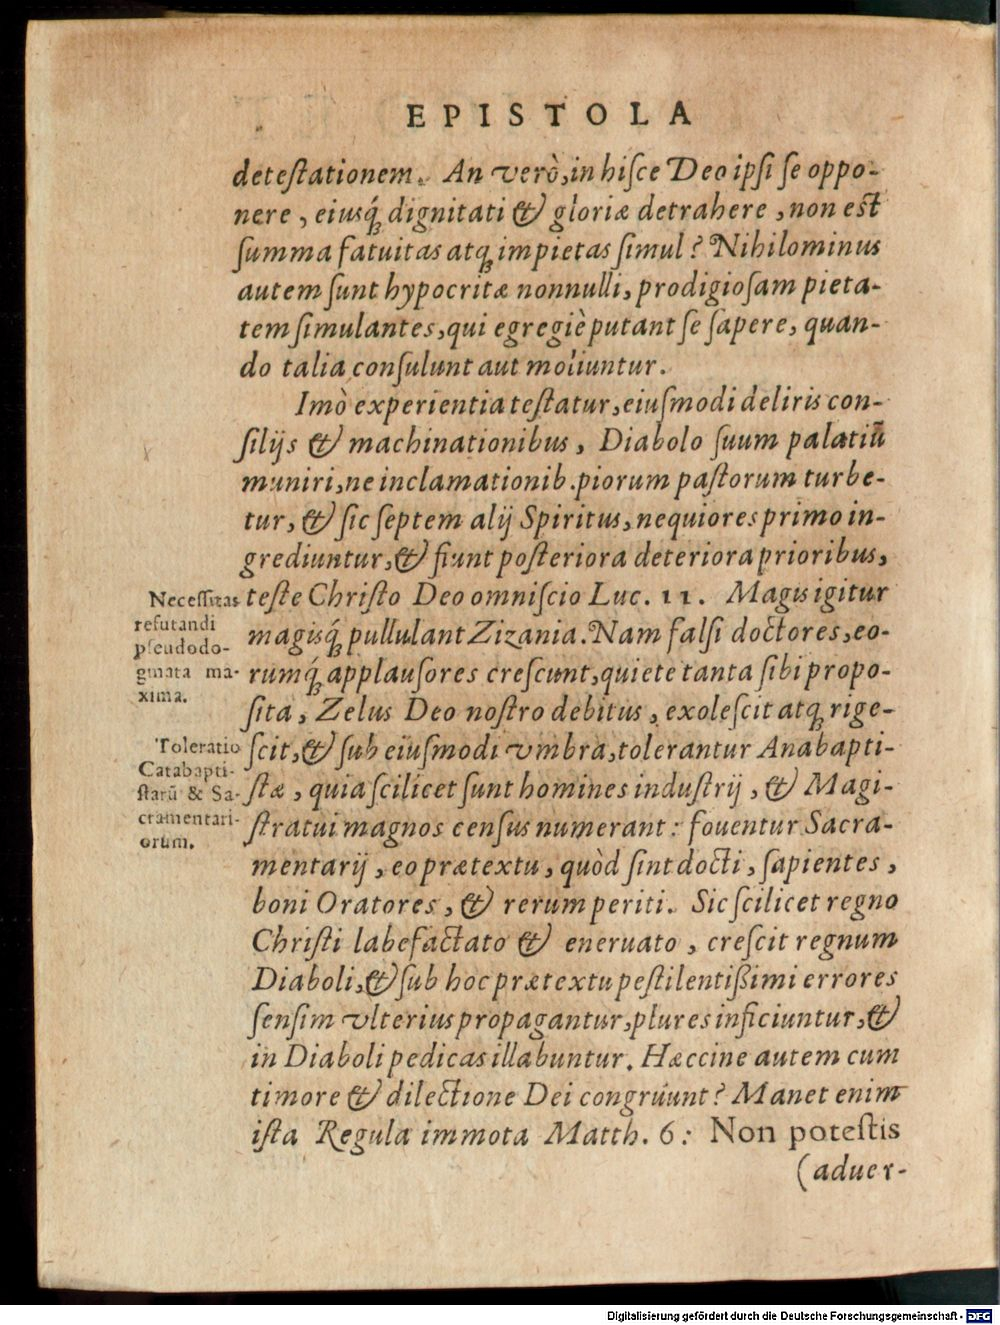 EPISTOLA
deteſtationem. An verò, in hiſce Deo ipſi ſe oppo-
nere, eiusq́; dignitati & gloriæ detrahere, non eſt
ſumma fatuitas atq; impietas ſimul? Nihilominus
autem ſunt hypocritæ nonnulli, prodigioſam pieta-
tem ſimulantes, qui egregiè putant ſe ſapere, quan-
do talia conſulunt aut moliuntur.
Imò experientia teſtatur, eiuſmodi deliris con-
ſilijs & machinationibus, Diabolo ſuum palatiũ
muniri, ne inclamationib. piorum paſtorum turbe-
tur, & ſic ſeptem alij Spiritus, nequiores primo in-
grediuntur, & fiunt poſteriora deteriora prioribus,
teſte Chriſto Deo omniſcio Luc. 11. Magis igitur
magisq́; pullulant Zizania. Nam falſi doctores, eo-
rumq́; applauſores creſcunt, quiete tanta ſibi propo-
ſita, Zelus Deo noſtro debitus, exoleſcit atq; rige-
ſcit, & ſub eiuſmodi vmbra, tolerantur Anabapti-
ſtæ, quia ſcilicet ſunt homines induſtrij, & Magi-
ſtratui magnos cenſus numerant: fouentur Sacra-
mentarij, eo prætextu, quòd ſint docti, ſapientes,
boni Oratores, & rerum periti. Sic ſcilicet regno
Chriſti labefactato & eneruato, creſcit regnum
Diaboli, & ſub hoc prætextu peſtilentißimi errores
ſenſim vlterius propagantur, plures inficiuntur, &
in Diaboli pedicas illabuntur. Hæccine autem cum
timore & dilectione Dei congruunt? Manet enim
iſta Regula immota Matth. 6: Non poteſtis
(aduer-
Neceſſitas
refutandi
pſeudodo-
gmata ma-
xima.
Toleratio
Catabapti-
ſtarũ & Sa-
cramentari-
orum.
Digitalisierung gefördert durch die Deutsche Forschungsgemeinschaft - DFG